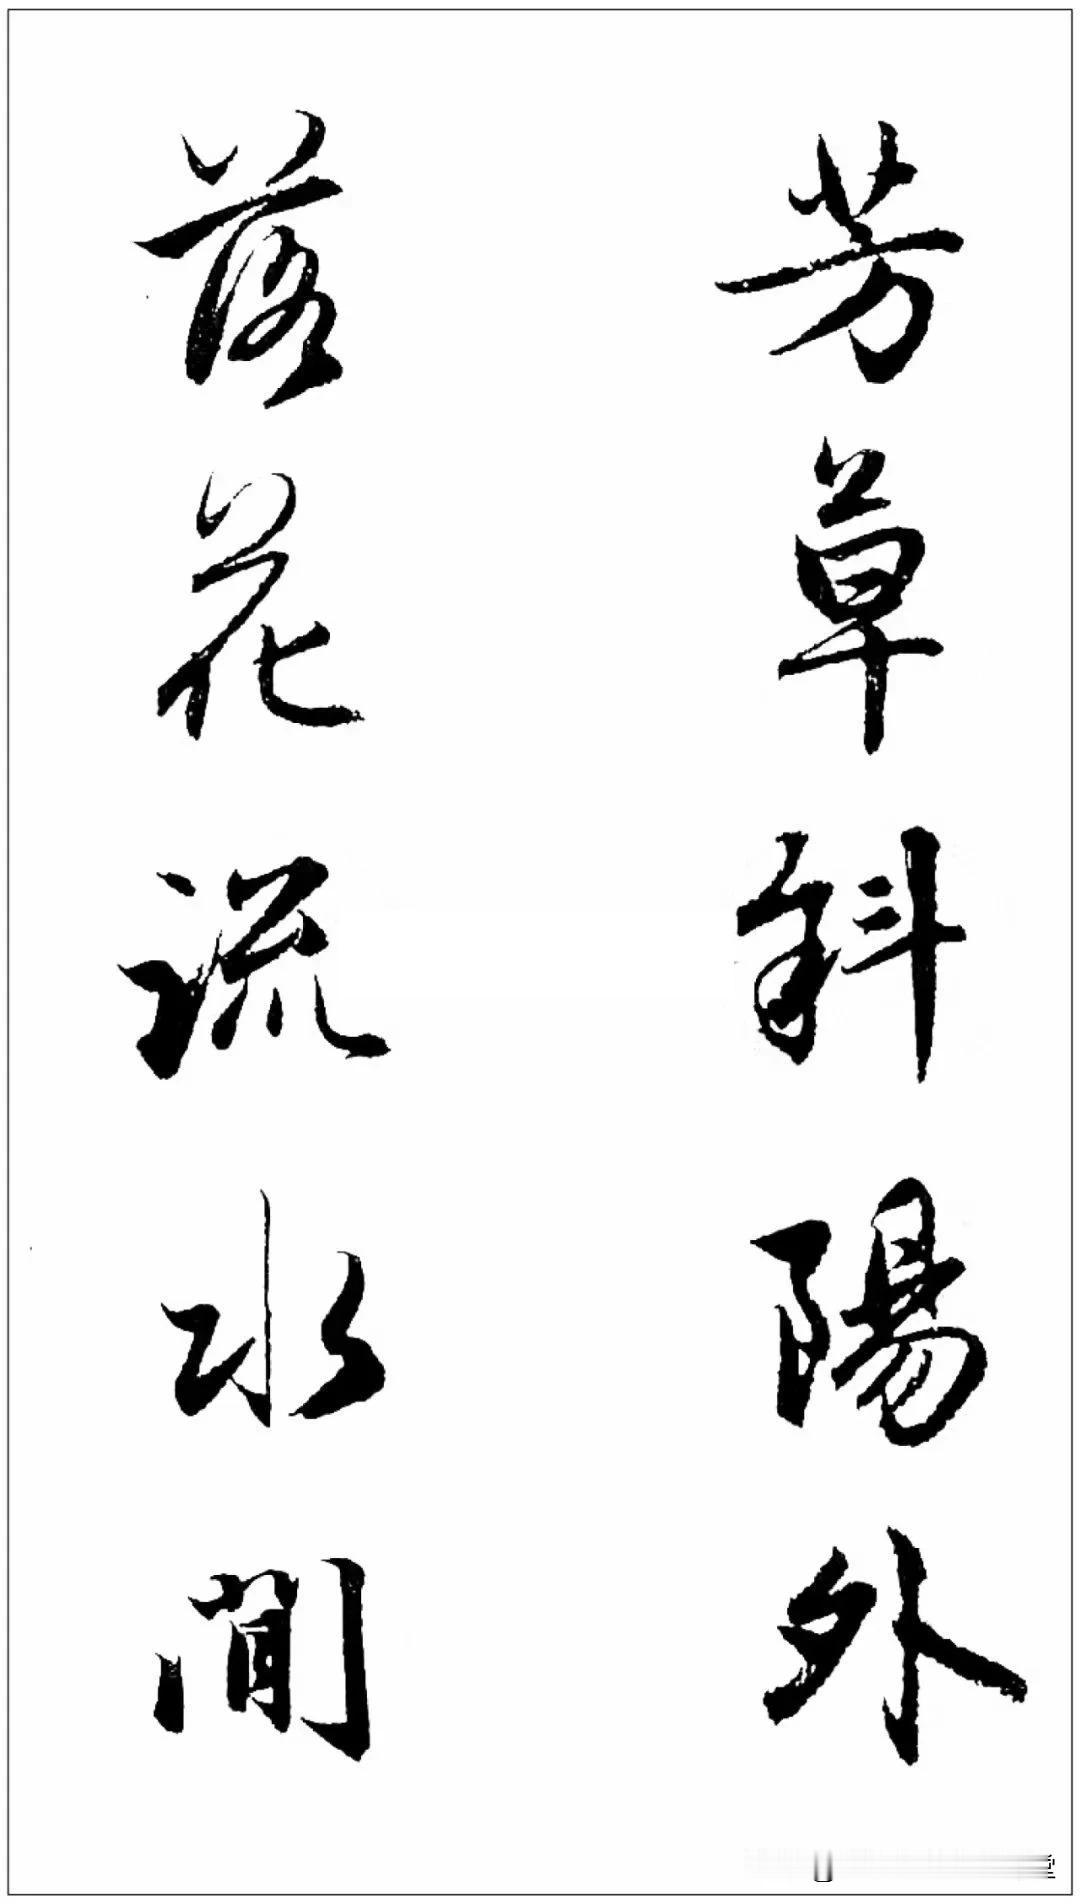 芳草斜陽外
落花流水間